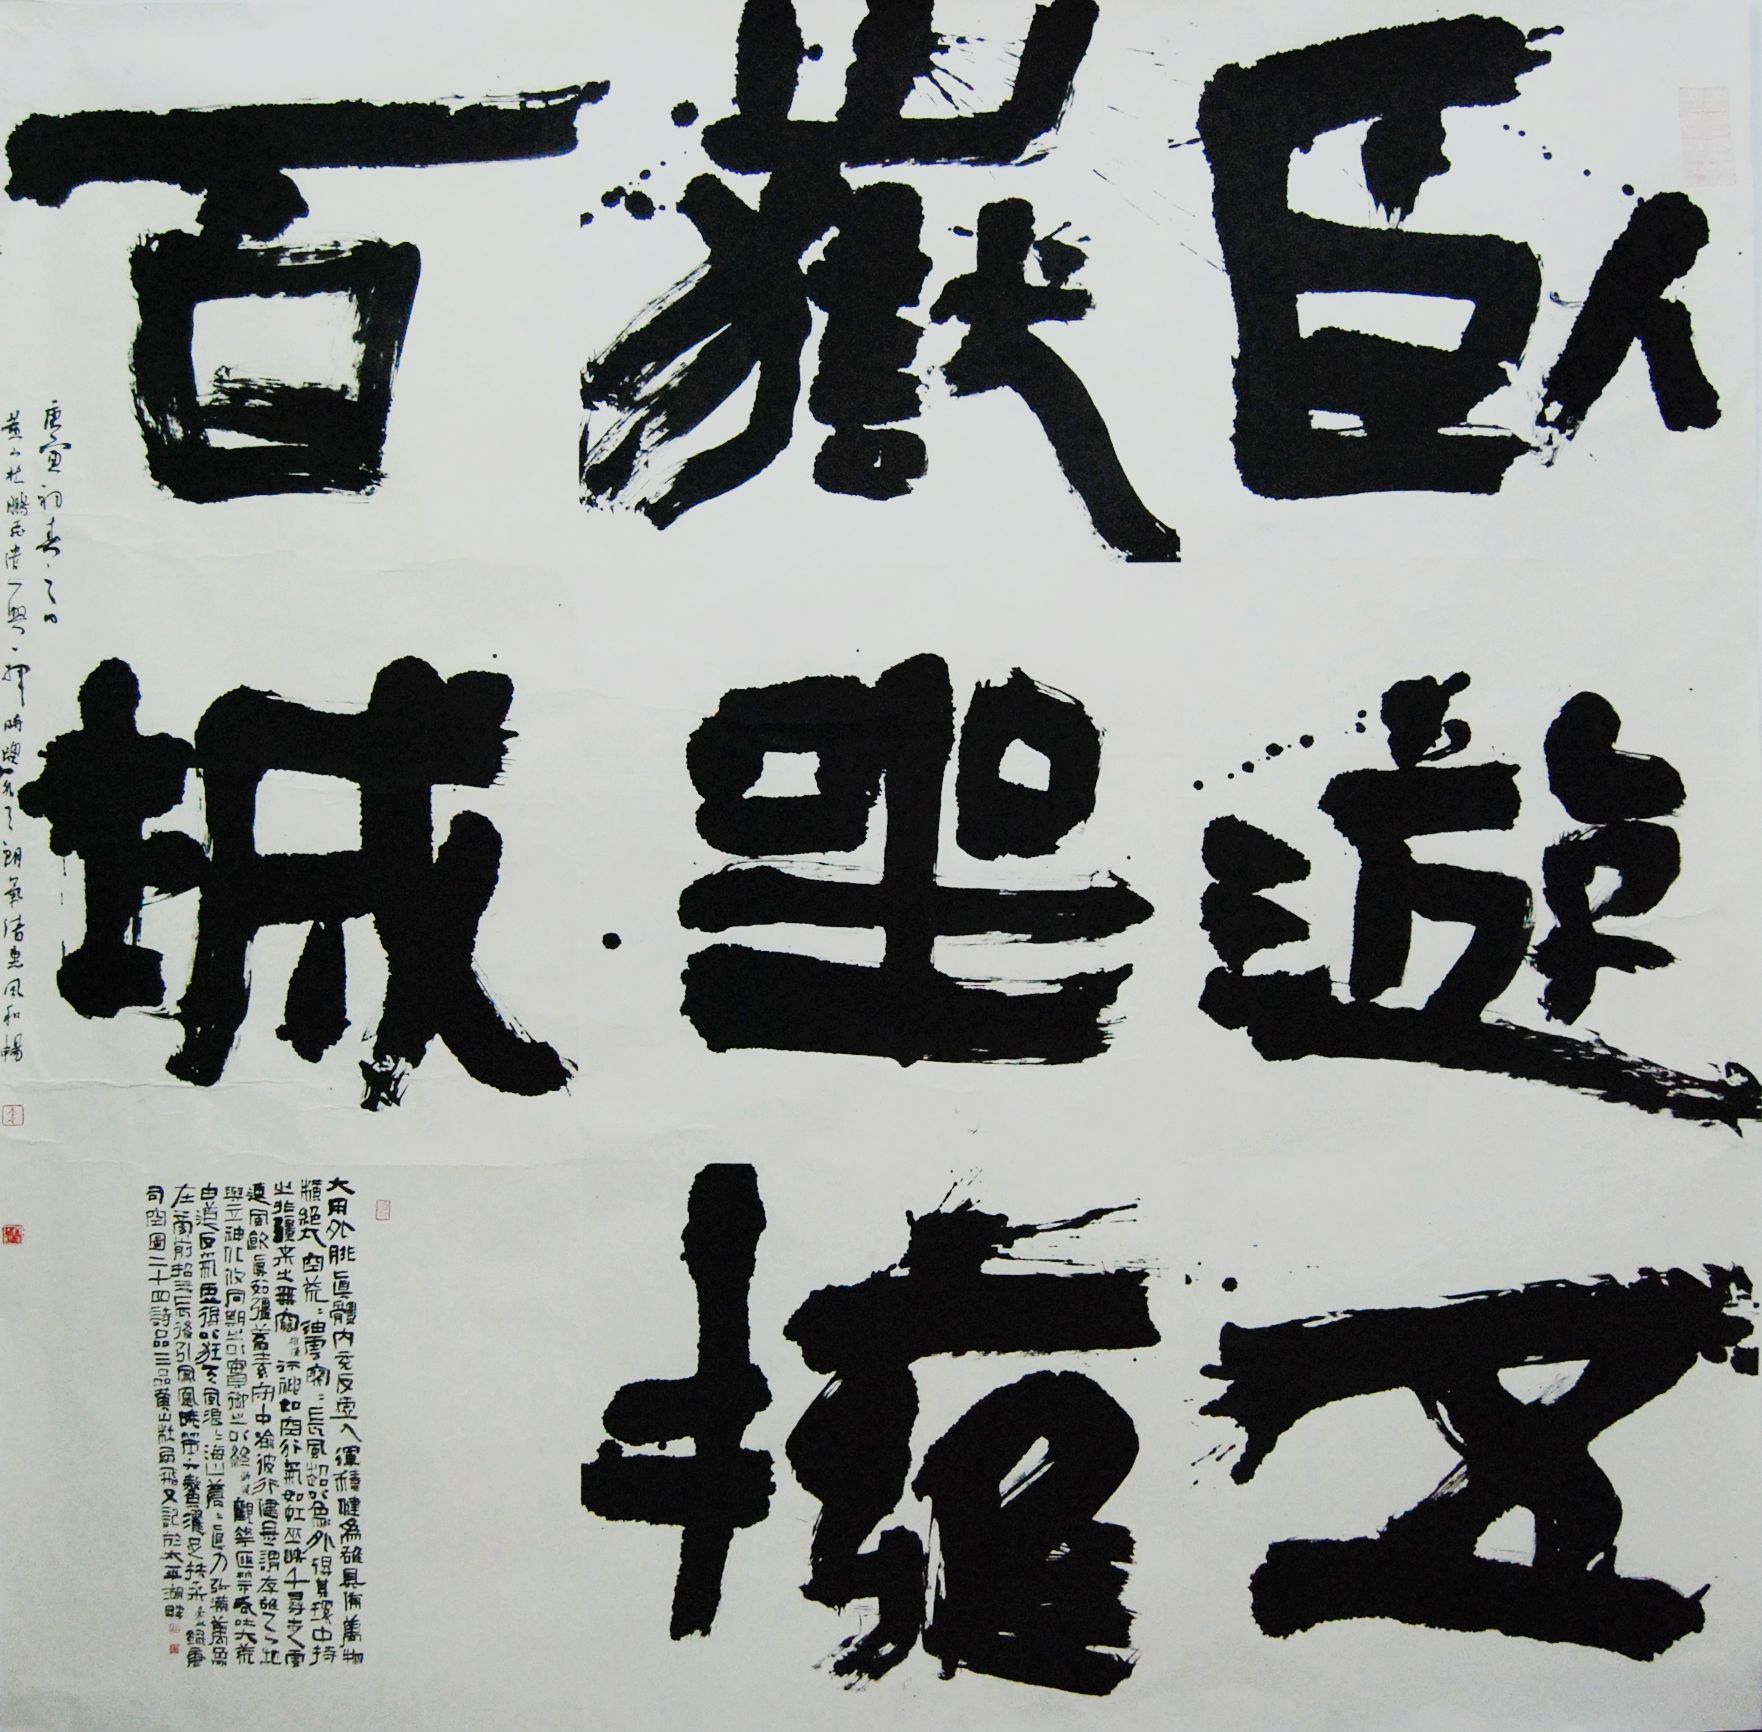 臥遊五
嶽坐擁
百城
庚寅初春之日
黃山杜鵬飛清興一揮時窗外天朗氣清惠風和暢
大用外腓真體內充反虛入渾積健為雄具備萬物
橫絕太空荒〻油雲寥〻長風超以象外得其環中持
之非彊來之無窮雄渾行神如空行氣如虹巫峽千尋走雲
連風飲真茹強蓄素守中喻彼行健是謂存雄天地
與立神化攸同期之以實御之以終勁健觀華匪禁吞吐大荒
由道反氣虛得以狂天風浪〻海山蒼〻真力弥滿萬象
在旁前招三辰後引鳳凰曉策六鰲濯足扶桑豪放錄唐
司空圖二十四詩品三品黃山杜鵬飛又記於太平湖畔